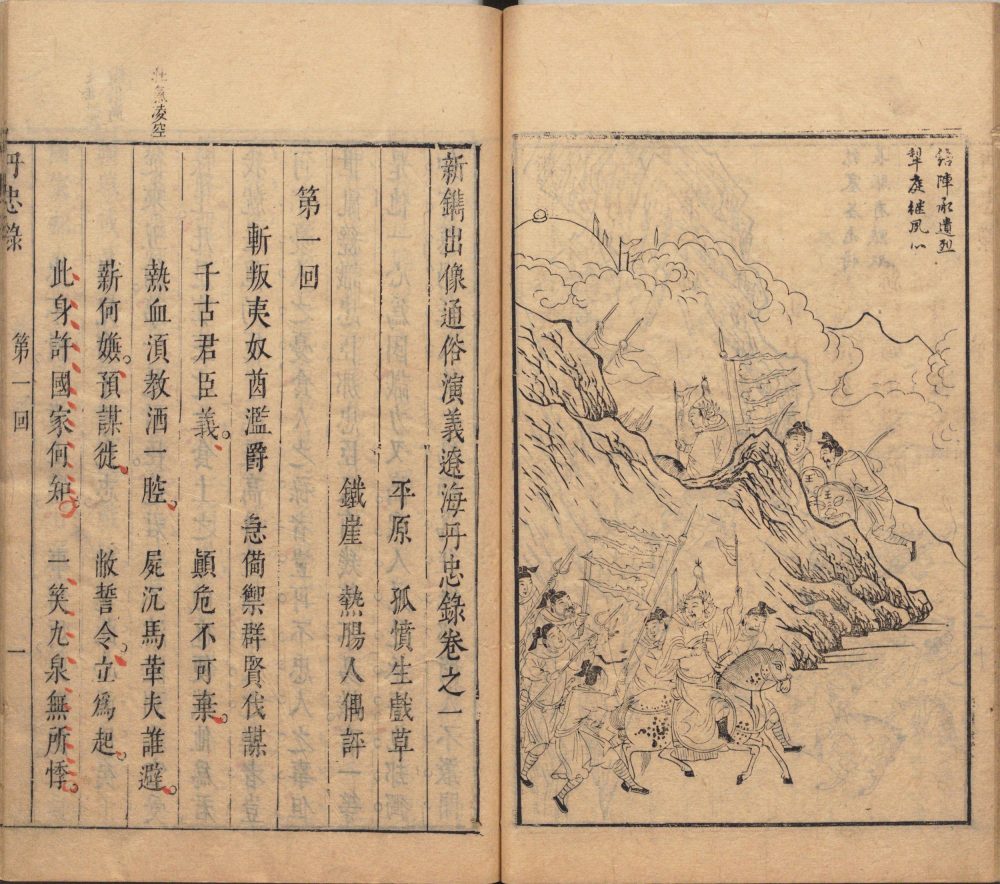 陣承遺烈
犂庭继風
王
王
新鐫出像通俗演義遼海丹忠錄卷之一
平原孤憤生戲草
鐵崖熱腸人偶評
第一回
斬叛夷奴酋濫爵　急偹禦群賢伐謀
千古君臣義。　顛危不可棄。
熱血湏教洒一腔、　屍沉馬革夫誰避。
薪何嬚。預謀徙、　敝誓令。立爲起。
此身許國家何知。　一笑九泉無所悸。
壯氣凌空
丹忠錄　第一回　一